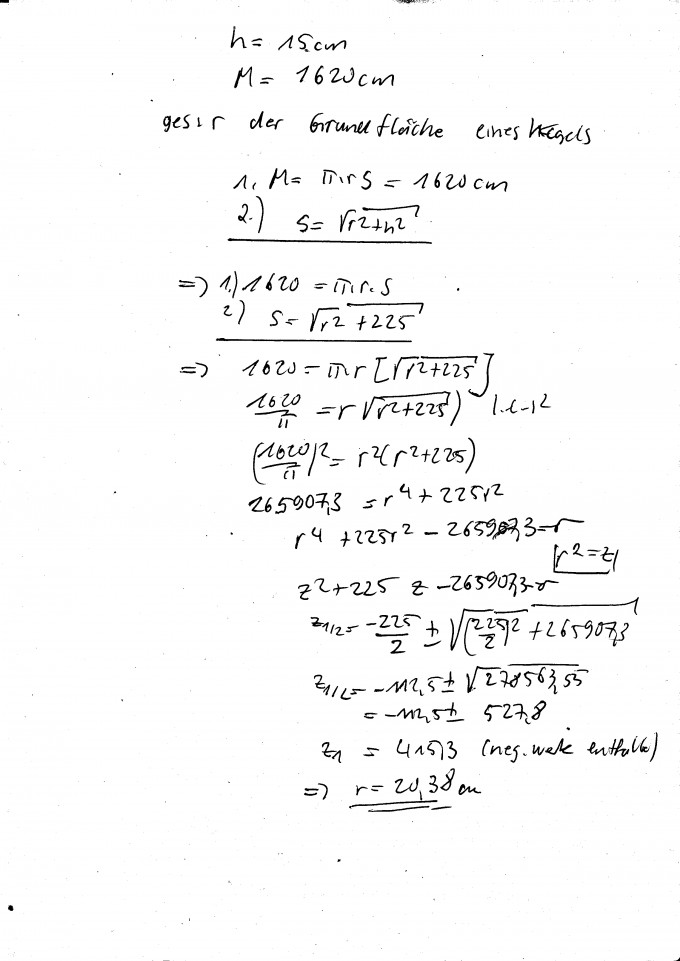 h = 15cm
M = 1620cm
ges: r der Grundfläche eines Kegels
1. M = π r s = 1620cm
2.) s = √(r²+h²)
=> 1.) 1620 = π·r·s
2) s = √(r² + 225)
=> 1620 = π r [√(r²+225)]
1620/π = r √(r²+225) ) |(-)²
(1620/π)² = r²(r²+225)
265907,3 = r⁴ + 225r²
r⁴ + 225r² - 265907,3 = 0
r² = z
z² + 225 z - 265907,3 = 0
z1/2 = -225/2 ± √((225/2)² + 265907,3)
z1/2 = -112,5 ± √278563,55
= -112,5 ± 527,8
z1 = 415,3 (neg. Werte entfällt)
=> r = 20,38 cm